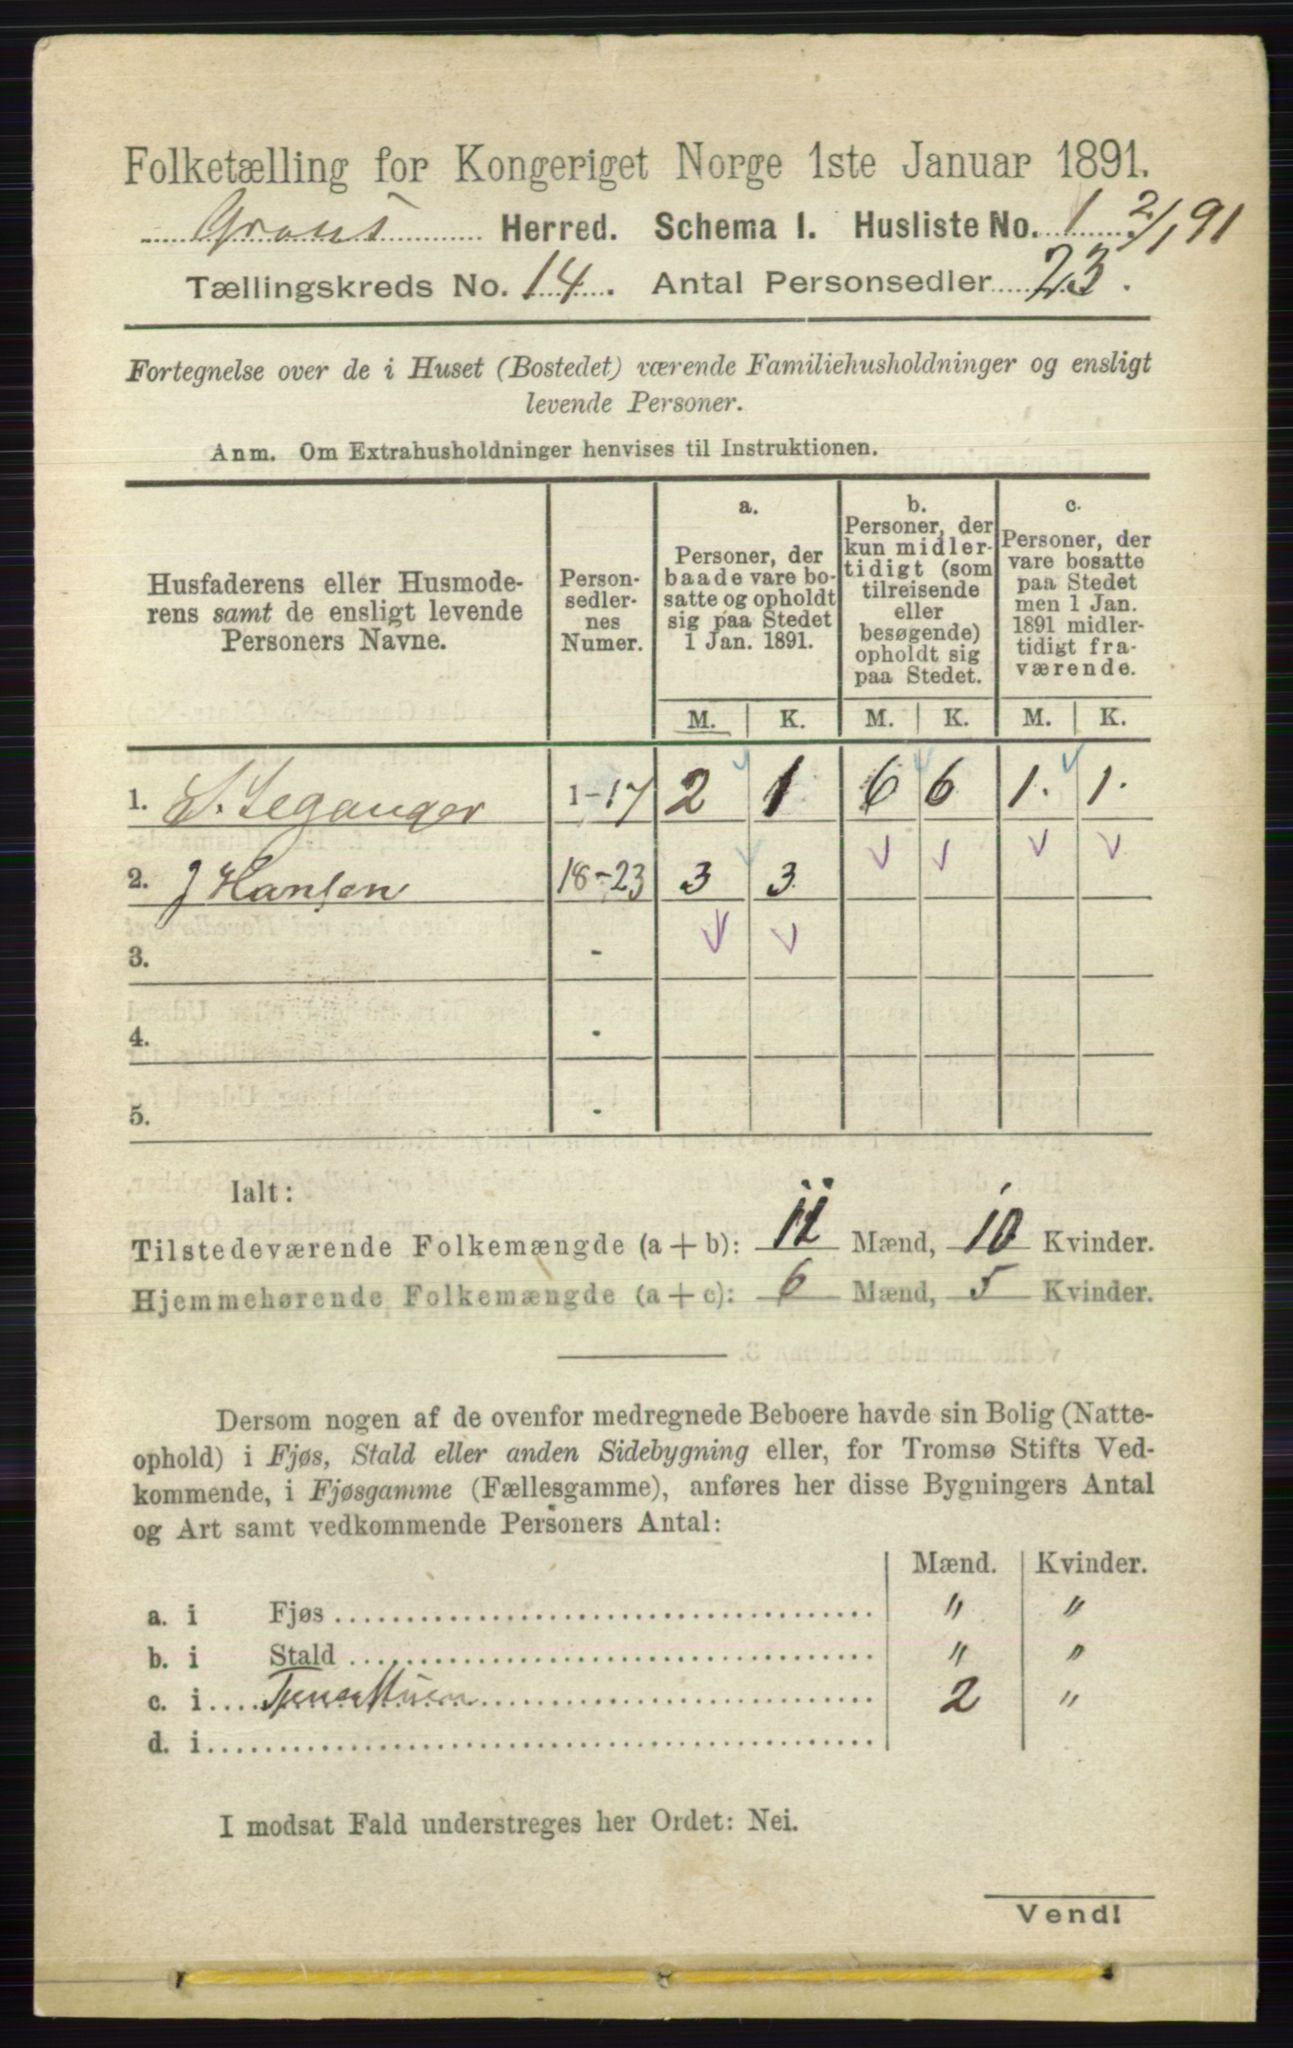 Folketælling for Kongeriget Norge 1ste Januar 1891.
Grans Herred. Schema I. Husliste No. 1 2/1 91
Tællingskreds No. 14. Antal Personsedler 23.
Fortegnelse over de i Huset (Bostedet) værende Familiehusholdninger og ensligt
levende Personer.
Anm. Om Extrahusholdninger henvises til Instruktionen.
Husfaderens eller Husmode-
rens samt de ensligt levende
Personers Navne.
Person-
sedler-
nes
Numer.
a.
Personer, der
baade vare bo-
satte og opholdt
sig paa Stedet
1 Jan. 1891.
b.
Personer, der
kun midler-
tidigt (som
tilreisende
eller
besøgende)
opholdt sig
paa Stedet.
c.
Personer, der
vare bosatte
paa Stedet
men 1 Jan.
1891 midler-
tidigt fra-
værende.
M. K. M. K. M. K.
1. S. Leganger 1-17 2 1 6 6 1. 1.
2. J Hansen 18-23 3 3
3. -
4. -
5. -
Ialt:
Tilstedeværende Folkemængde (a + b): 11 Mænd, 10 Kvinder.
Hjemmehørende Folkemængde (a + c): 6 Mænd, 5 Kvinder.
Dersom nogen af de ovenfor medregnede Beboere havde sin Bolig (Natte-
ophold) i Fjøs, Stald eller anden Sidebygning eller, for Tromsø Stifts Ved-
kommende, i Fjøsgamme (Fællesgamme), anføres her disse Bygningers Antal
og Art samt vedkommende Personers Antal:
Mænd. Kvinder.
a. i Fjøs " "
b. i Stald " "
c. i 2 "
d. i
I modsat Fald understreges her Ordet: Nei.
Vend!